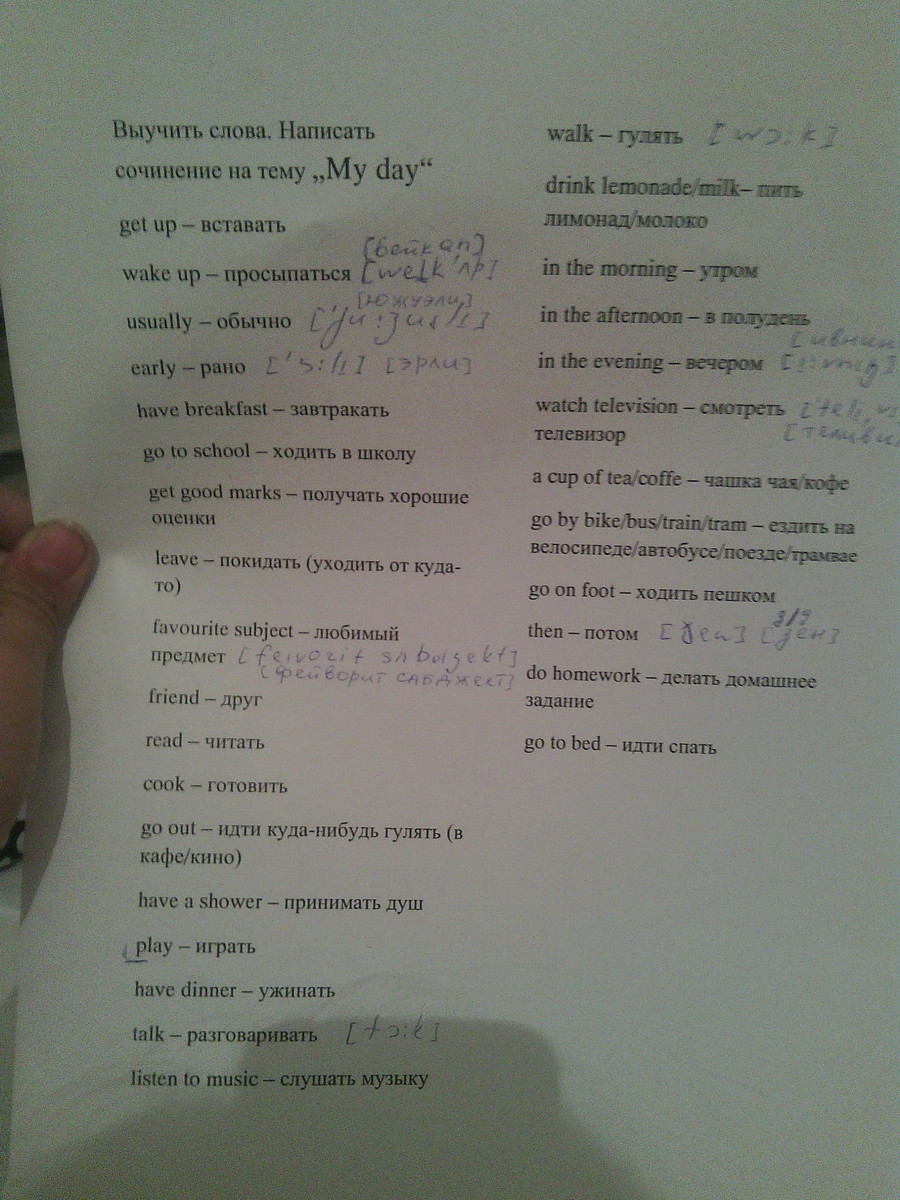 Выучить слова. Написать
сочинение на тему „My day“
get up – вставать
[вейкап]
wake up – просыпаться [weɪk'ʌp]
[южуэли]
usually – обычно ['ju:ʒuəlɪ]
early – рано ['ɜ:lɪ] [эрли]
have breakfast – завтракать
go to school – ходить в школу
get good marks – получать хорошие
оценки
leave – покидать (уходить от куда-
то)
favourite subject – любимый
предмет
[фейворит сабджект]
friend – друг
read – читать
cook – готовить
go out – идти куда-нибудь гулять (в
кафе/кино)
have a shower – принимать душ
play – играть
have dinner – ужинать
talk – разговаривать [tɔ:k]
listen to music – слушать музыку
walk – гулять [wɔ:k]
drink lemonade/milk– пить
лимонад/молоко
in the morning – утром
in the afternoon – в полудень
in the evening – вечером
watch television – смотреть
телевизор
a cup of tea/coffe – чашка чая/кофе
go by bike/bus/train/tram – ездить на
велосипеде/автобусе/поезде/трамвае
go on foot – ходить пешком
then – потом [ðen] [зен]
do homework – делать домашнее
задание
go to bed – идти спать